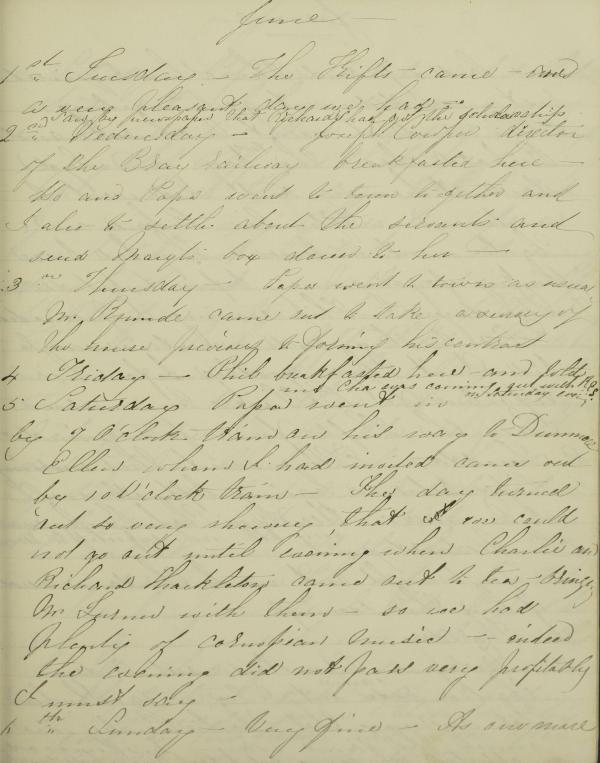 June —
1st Tuesday — The Clifts came — and
a very pleasant day we had —
Saw by newspaper that Richard has got the scholarship
2nd Wednesday — Joseph Cowper director
of the Bray railway breakfasted here —
He and Papa went to town together and
I also to settle about the servants and
send Mary's box down to her —
3rd Thursday — Papa went to town as usual
Mr came out to take a survey of
the house previous to his contract
4 Friday — Phil breakfasted here — and told
me Cha was coming out with R.P.S. on Saturday evg
5 Saturday Papa went in
by 7 O'clock train on his way to Dunmore
Ellen whom I had invited came out
by 10 O'clock train — The day turned
out so very showery that we could
not go out until Evening when Charlie and
Richard Shackleton came out to tea — bringing
Mr Turner with them — so we had
plenty of cornopian music — indeed
the evening did not pass very profitably
I must say —
6th Sunday — Very fine — As one more